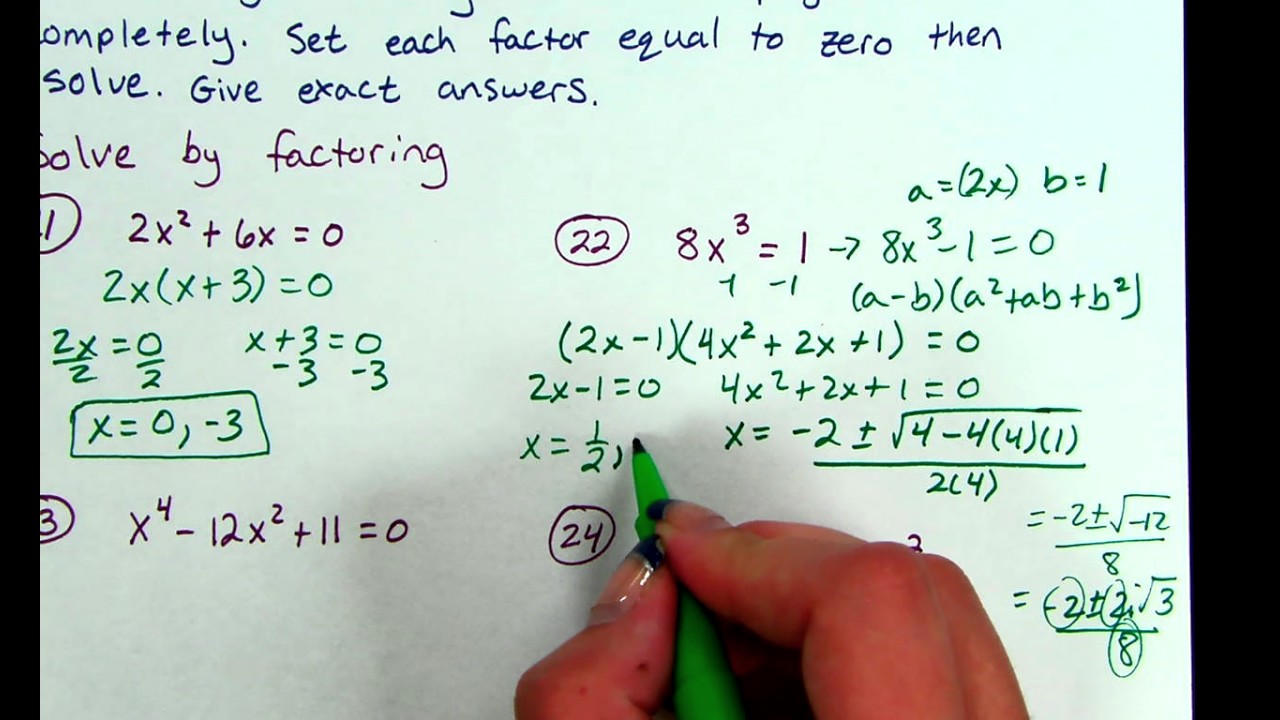 ompletely. Set each factor equal to zero then
solve. Give exact answers.
Solve by factoring
1 2x² + 6x = 0
2x(x+3) = 0
2x = 0 x+3 = 0
2 2 -3 -3
x = 0, -3
a = (2x) b = 1
22 8x³ = 1 → 8x³ - 1 = 0
-1 -1 (a-b)(a²+ab+b²)
(2x-1)(4x²+2x+1) = 0
2x-1=0 4x²+2x+1=0
x = 1/2, x = -2 ± √4-4(4)(1)
2(4)
= -2±√-12
8
= -2±2i√3
8
3 x⁴ - 12x² + 11 = 0
24